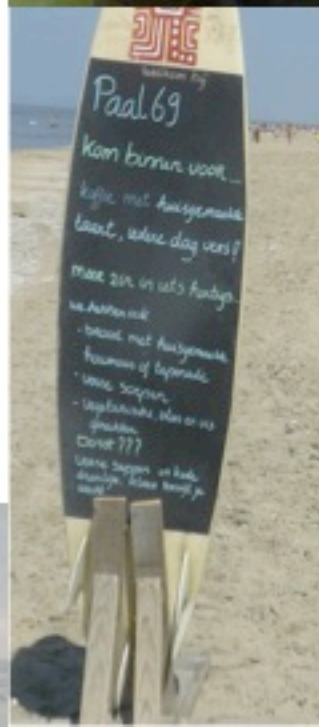 Welkom bij
Paal 69
kom binnen voor...
koffie met huisgemaakte
taart, iedere dag vers!
meer zin in iets hartigs..
we hebben ook
- brood met huisgemaakte
houmous of tapenade
- verse soepen
- Vegetarische, vlees en vis
gerechten
Dorst???
Verse sappen en koele
drankjes